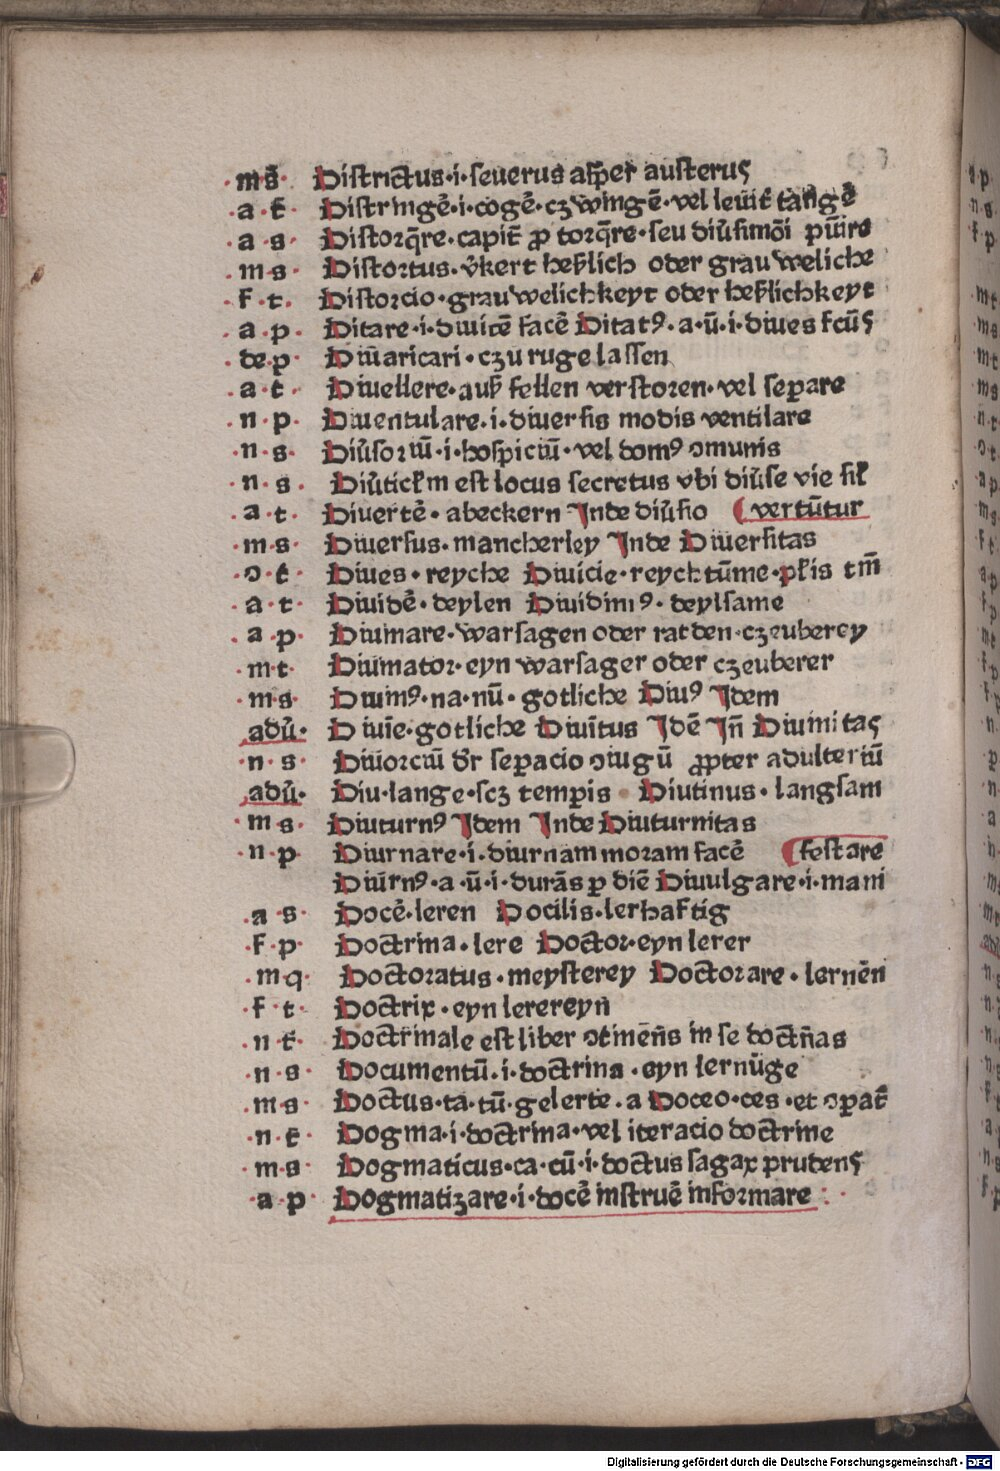 ·m·s̄· Districtus·i·seuerus asꝑer austerus
·a·t̄· Distringē·i·cogē·czwingē·vel leuit̄ tāgē
·a·s· Distorq̄re·capit̄ ꝓ torq̄re·seu diu̓simōi pūire
·m·s· Distortus·v̓kert heßlich oder grauweliche
·f·t· Distorcio·grauwelichkeyt oder heßlichkeyt
·a·p· Ditare·i·diuitē facē Ditatꝰ·a·ū·i·diues fcūs
·de·p· Diuaricari·czu ruge lassen
·a·t· Diuellere·auß fellen verstoren·vel seꝑare
·n·p· Diuentulare·i·diuersis modis ventilare
·n·s· Diu̓soriū·i·hospiciū·vel domꝰ ꝯmunis
·n·s· Diu̓ticl̄m est locus secretus vbi diu̓se vie sil̄
·a·t· Diuertē·abeckern Inde diu̓sio (vertūtur
·m·s· Diuersus·mancherley Inde Diuersitas
·o·t̄· Diues·reyche Diuicie·reychtūme·pl̄is tm̄
·a·t· Diuidē·deylen Diuidimꝰ·deylsame
·a·p· Diuinare·warsagen oder ratden·czeuberey
·m·t· Diuinator·eyn warsager oder czeuberer
·m·s· Diuinꝰ·na·nū·gotliche Diuꝰ Idem
adu̓· Diuīe·gotliche Diuītus Idē Iñ Diuinitas
·n·s· Diuorciū dr̄ seꝑacio ꝯiugū ꝓpter adulteriū
adu̓· Diu·lange·scz temꝑis Diutinus·langsam
·m·s· Diuturnꝰ Idem Inde Diuturnitas
·n·p· Diurnare·i·diurnam moram facē (festare
Diūrnꝰ·a·ū·i·durās ꝑ diē Diuulgare·i·mani
·a·s· Docē·leren Docilis·lerhaftig
·f·p· Doctrina·lere Doctor·eyn lerer
·m·q· Doctoratus·meysterey Doctorare·lernēn
·f·t· Doctrix·eyn lerereyn
·n·t̄· Doctrinale est liber ꝯtinēns in se doctr̄nas
·n·s· Documentū·i·doctrina·eyn lernūge
·m·s· Doctus·ta·tū·gelerte·a Doceo·ces·et ꝯꝑat̄
·n·t̄· Dogma·i·doctrina·vel iteracio doctrine
·m·s· Dogmaticus·ca·cū·i·doctus sagax prudens
·a·p· Dogmatizare·i·docē instruē informare:·
Digitalisierung gefördert durch die Deutsche Forschungsgemeinschaft - DFG